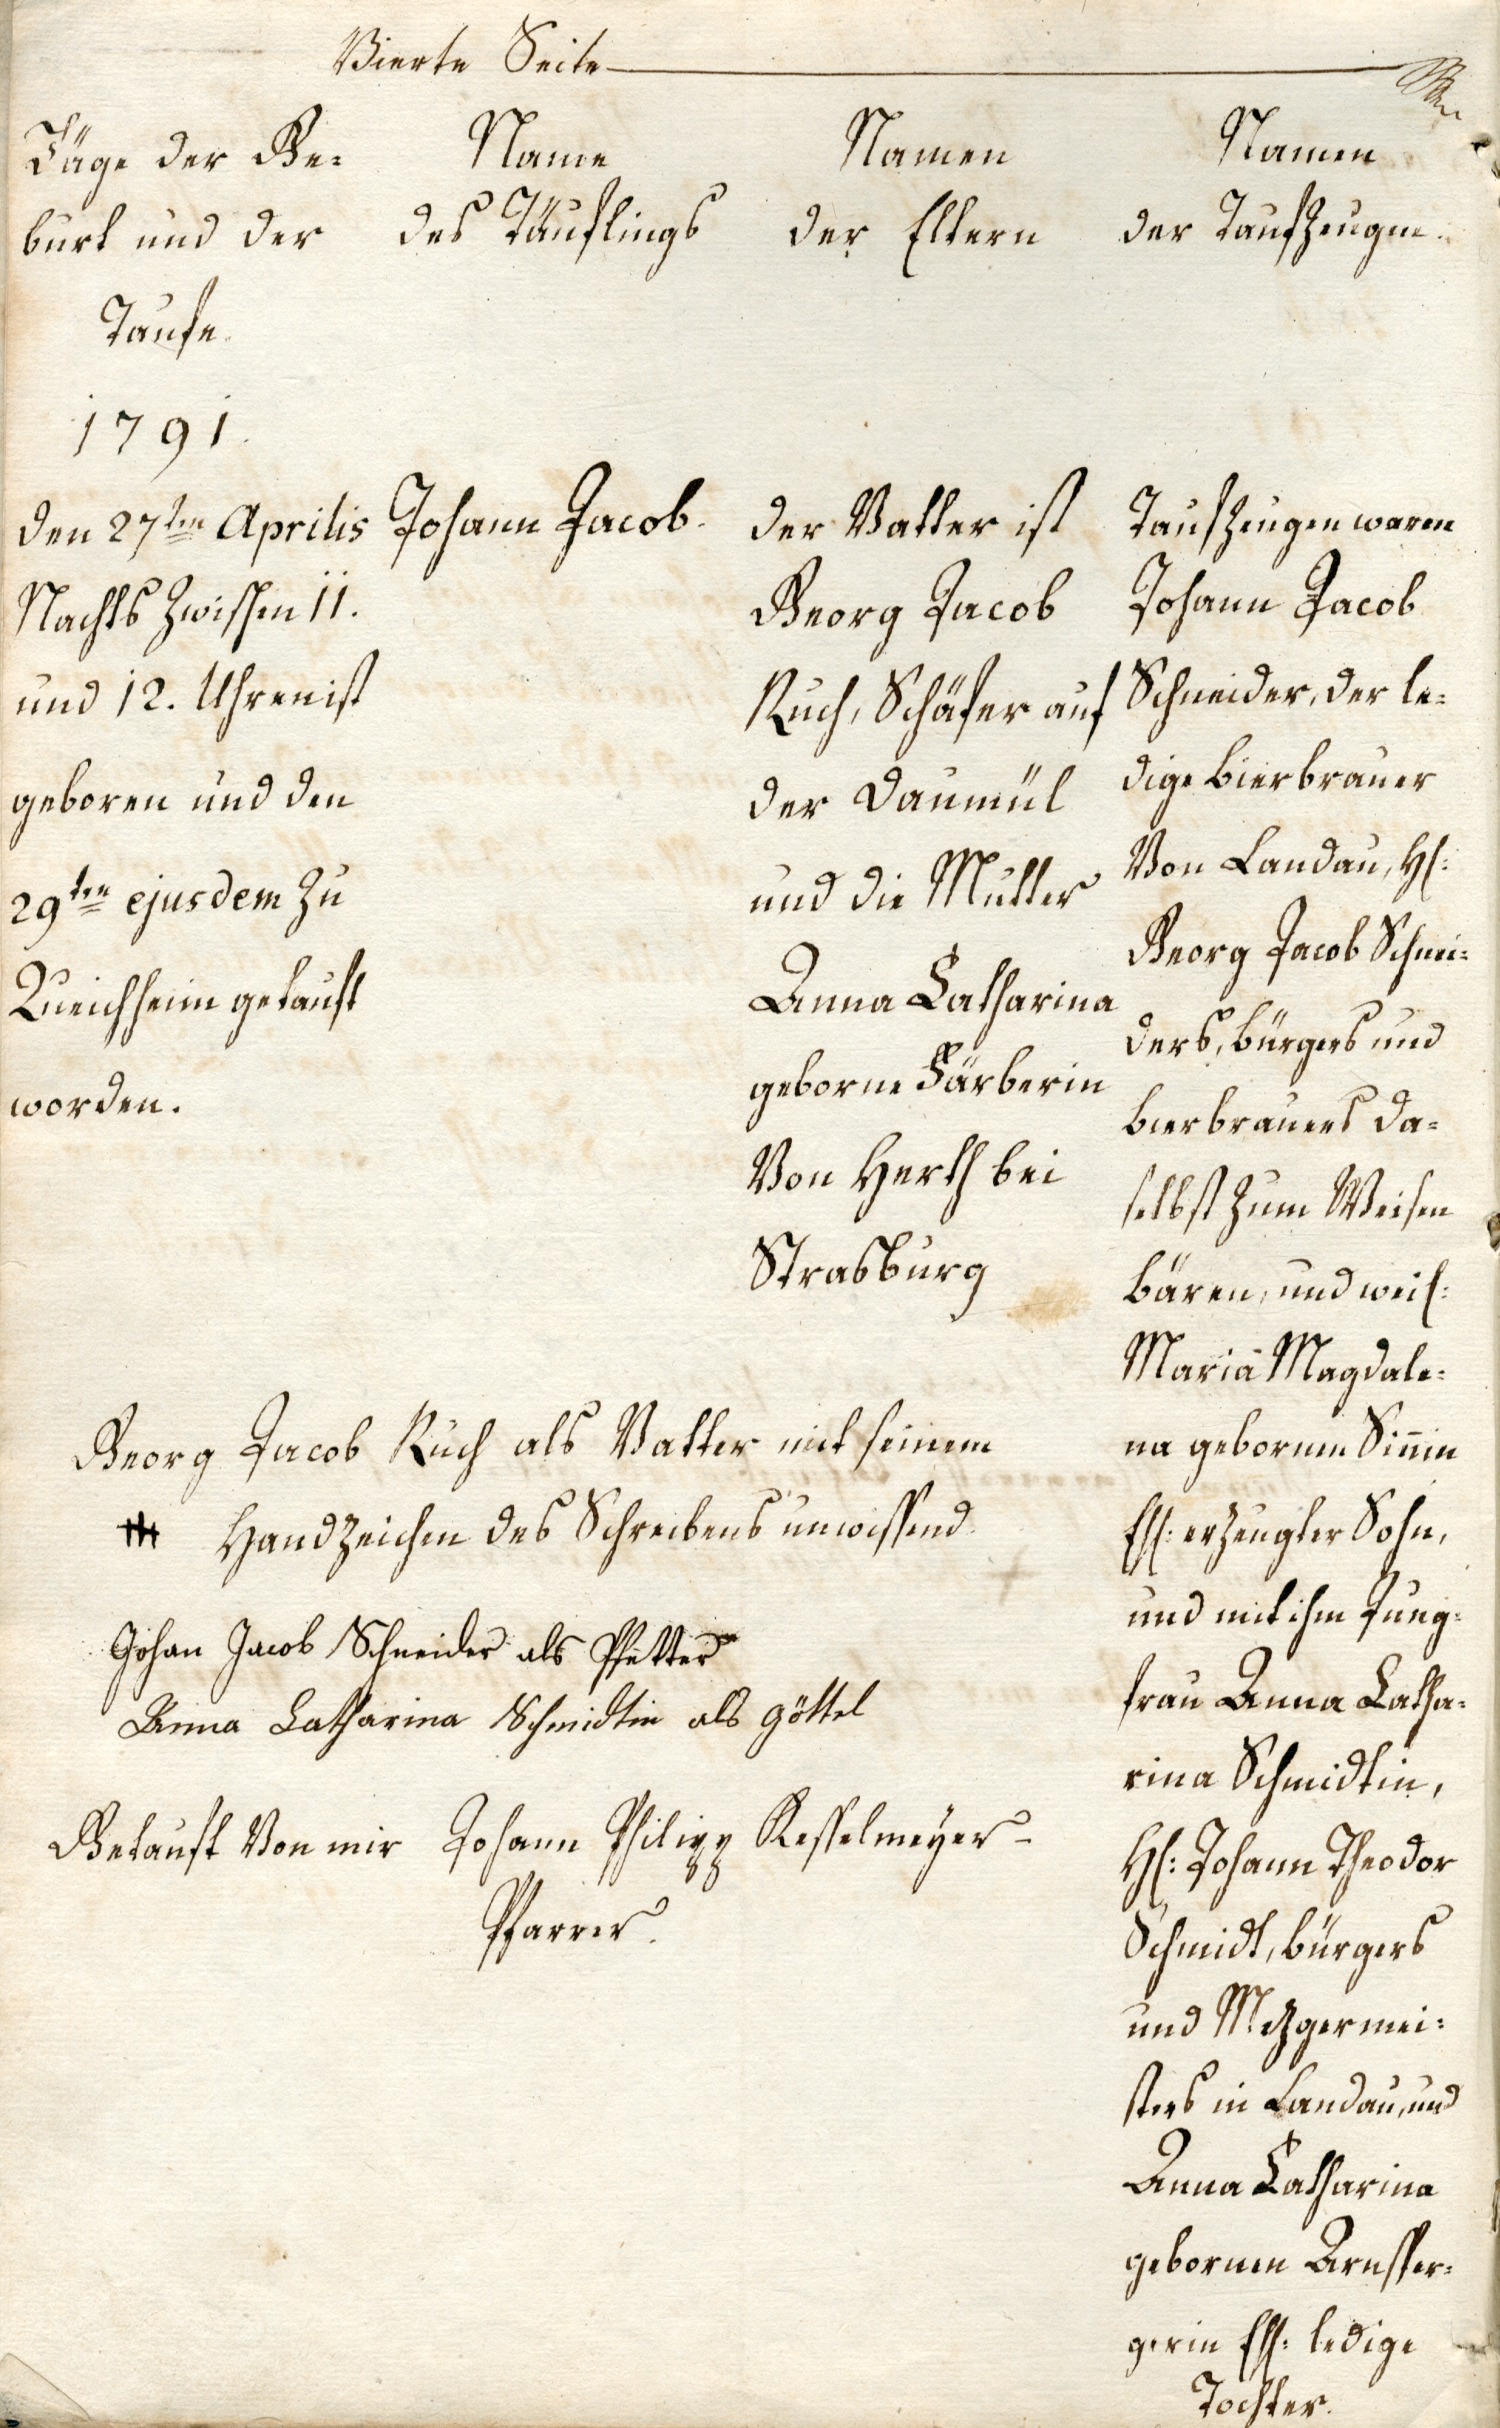 Vierte Seite
Täge der Ge=
burt und der
Taufe.
1791.
den 27ten Aprilis
Nachts zwischen 11.
und 12. Uhren ist
geboren und den
29ten ejusdem zu
Queichheim getauft
worden.
Name
des Täuflings
Johann Jacob.
Namen
der Eltern
der Vatter ist
Georg Jacob
Ruch, Schäfer auf
der Daumül
und die Mutter
Anna Catharina
geborne Färberin
Von Herth bei
Strasburg
Namen
der Taufzeugen.
Taufzeugen waren
Johann Jacob
Schneider, der le=
dige bierbrauer
Von Landau, H:
Georg Jacob Schnei=
ders, bürgers und
bierbrauers da=
selbst zum Weisen
bären, und weil:
Mariä Magdale=
na gebornen Sinnin
Ehl: erzeugter Sohn,
und mit ihm Jung=
frau Anna Catha=
rina Schmidtin,
H: Johann Theodor
Schmidt, bürgers
und Mezgermei=
sters in Landau, und
Anna Catharina
gebornen
Ehl: ledige
Tochter.
Georg Jacob Ruch als Vatter mit seinem
Handzeichen des Schreibens unwissend.
Johan Jacob Schneider als Pfetter
Anna Catharina Schmidtin als göttel
Getauft Von mir Johann Philipp Kesselmeyer
Pfarrer.